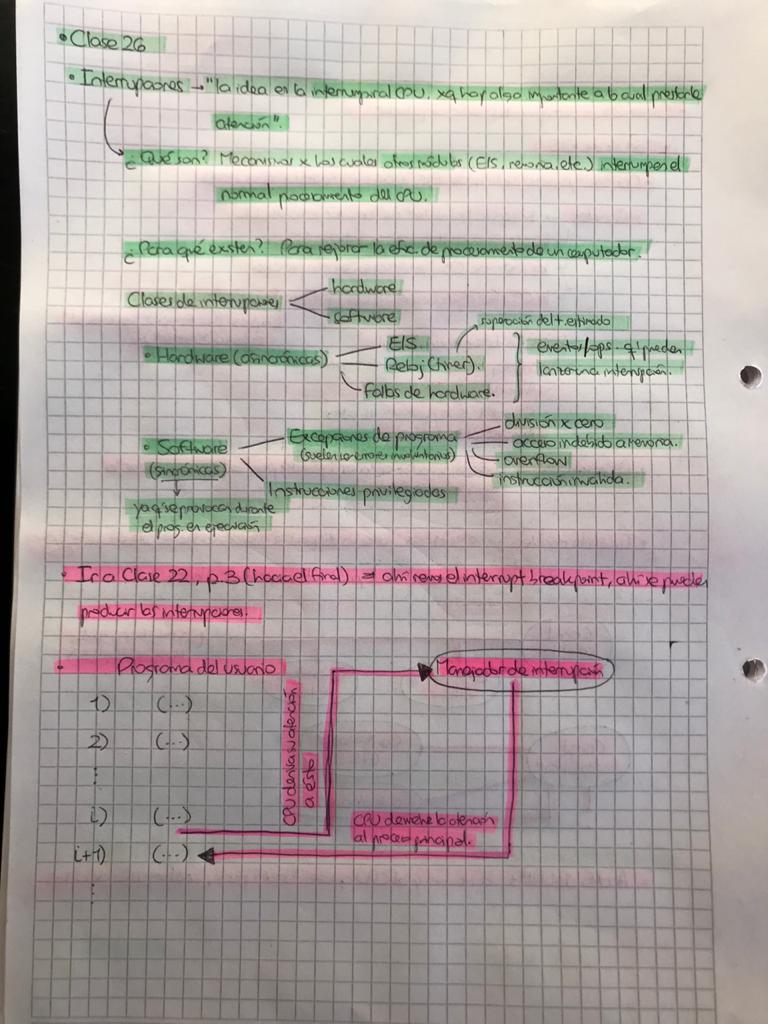 • Clase 26
• Interrupciones → "la idea es la interrumpir al CPU, xq hay algo importante a lo cual prestarle
atención".
¿Qué son? Mecanismos x los cuales otros módulos (E/S, memoria, etc.) interrumpen el
normal procesamiento del CPU.
¿Para qué existen? Para mejorar la efic. de procesamiento de un computador.
Clases de interrupciones
hardware
software
• Hardware (asincrónicas)
E/S
Reloj (timer).
superación del t. estimado
Fallos de hardware.
eventos/ops. q' pueden
lanzar una interrupción.
• Software
(sincrónicas)
ya q' se provocan durante
el prog. en ejecución
Excepciones de programa
(suelen ser errores involuntarios)
división x cero
acceso indebido a memoria.
overflow
instrucción inválida.
Instrucciones privilegiadas
• Ir a Clase 22, p.3 (hacia el final) ⇒ ahí vemos el interrupt breakpoint, ahí se pueden
producir las interrupciones.
• Programa del usuario
Manejador de interrupción
1) (...)
2) (...)
⋮
i) (...)
i+1) (...)
⋮
CPU deriva su atención
a éste
CPU devuelve la atención
al proceso principal.